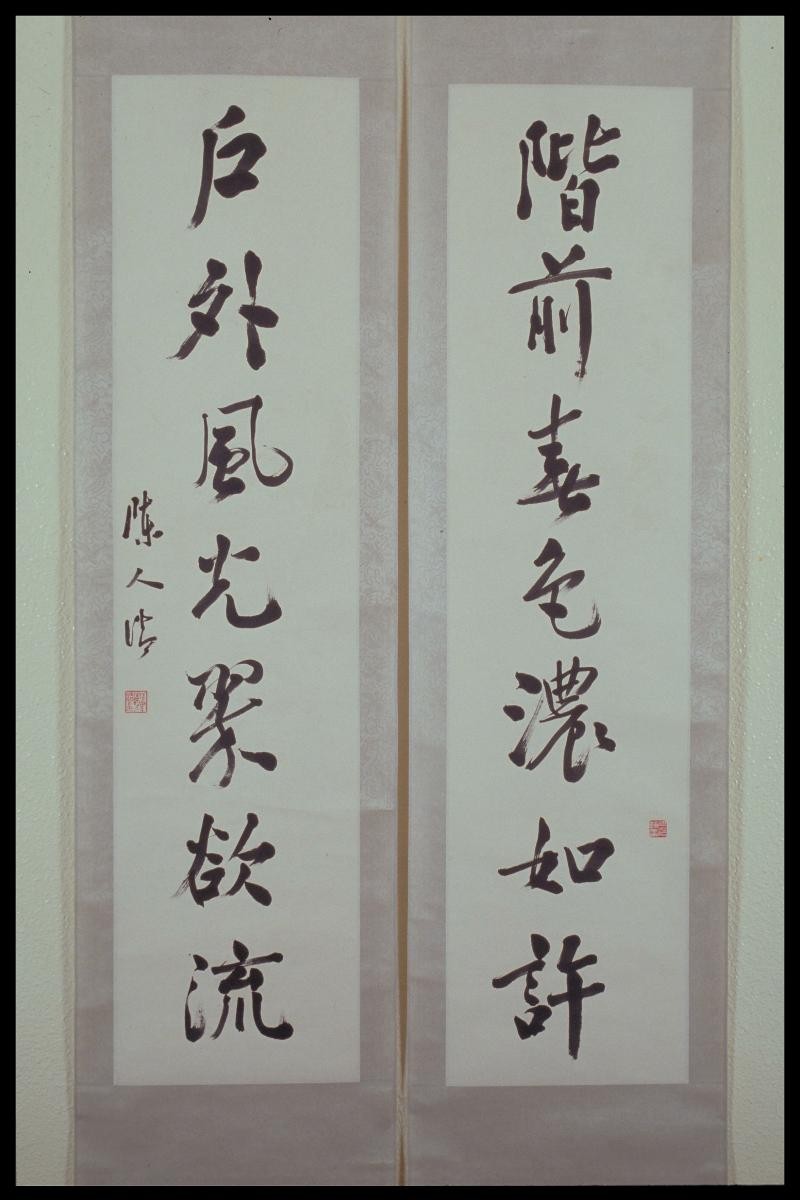 階前春色濃如許
戶外風光翠欲流
陳人浩